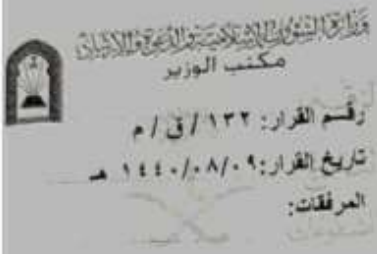 وزارة الشؤون الإسلامية والدعوة والإرشاد
مكتب الوزير
رقم القرار: ١٣٢ / ق / م
تاريخ القرار: ١٤٤٠/٠٨/٠٩ هـ
المرفقات: